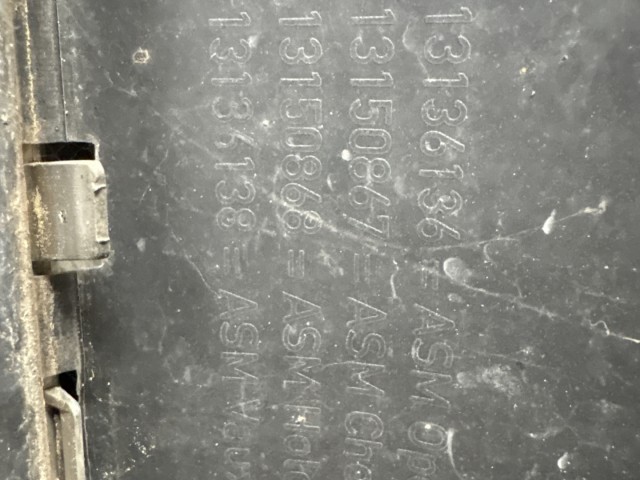 13136136 = ASM Op
13150867 = ASM Cha
13150868 = ASM Hol
13136138 = ASM Vau